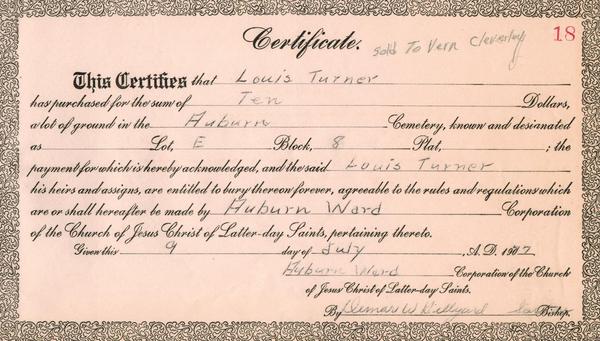 Certificate. sold To Vern Cleverley 18
This Certifies that Louis Turner
has purchased for the sum of Ten Dollars,
a lot of ground in the Auburn Cemetery, known and designated
as Lot, E Block, 8 Plat, ; the
payment for which is hereby acknowledged, and the said Louis Turner
his heirs and assigns, are entitled to bury thereon forever, agreeable to the rules and regulations which
are or shall hereafter be made by Auburn Ward Corporation
of the Church of Jesus Christ of Latter-day Saints, pertaining thereto.
Given this 9 day of July , A. D. 19
Auburn Ward Corporation of the Church
of Jesus Christ of Latter-day Saints.
By W Hillyard Bishop.